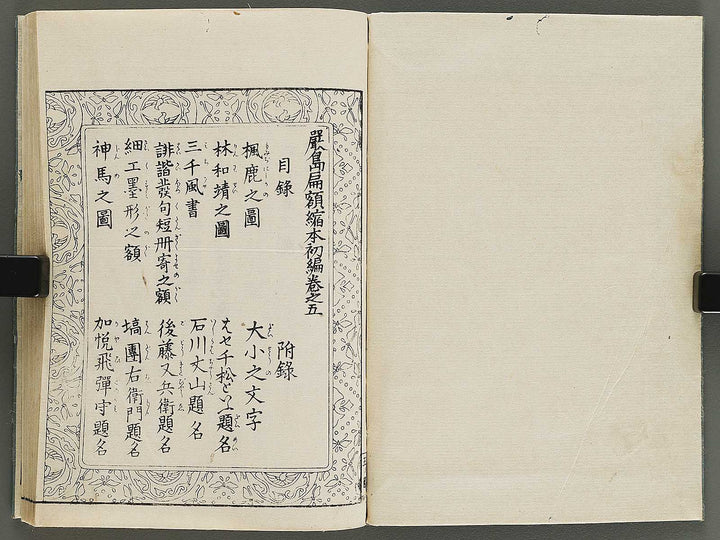 嚴島扁額縮本初編巻之五
目錄
楓鹿之圖
林和靖之圖
三千風書
誹諧發句短册寄之額
細工墨形之額
神馬之圖
附錄
大小之文字
はせ千松と云題名
石川丈山題名
後藤又兵衛題名
塙團右衛門題名
加悦飛彈守題名